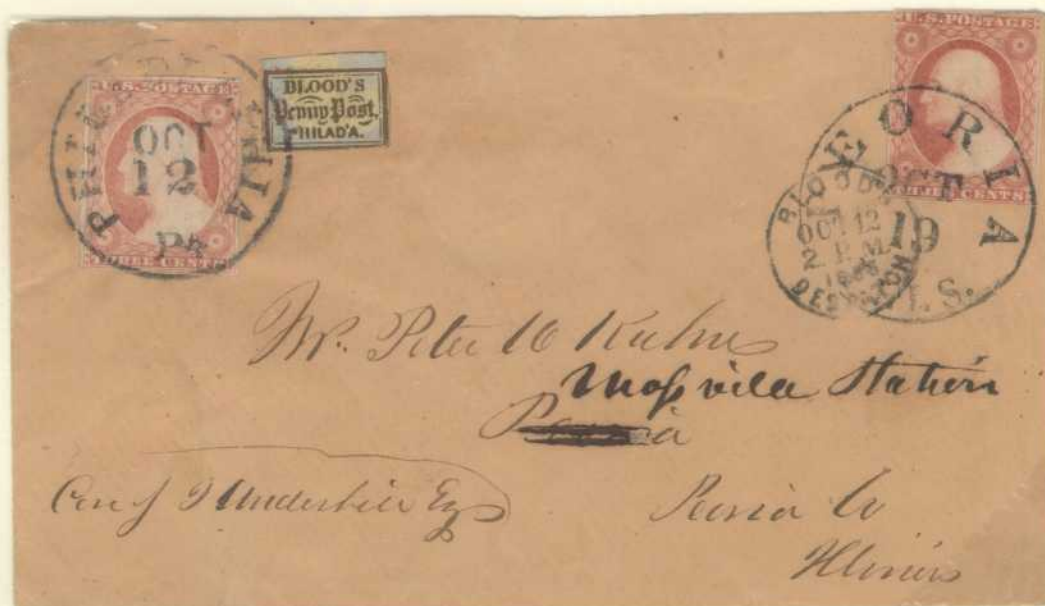 U.S. POSTAGE
THREE CENTS
PHILADELPHIA
OCT
12
Pa
BLOOD'S
Penny Post,
PHILAD'A.
U.S. POSTAGE
THREE CENTS
PEORIA
OCT
19
BLOOD'S
OCT 12
2 P.M.
DESPATCH
Mr. Peter
Mossville Station
Peoria
Care of J Underhill Esq
Peoria Co
Illinois